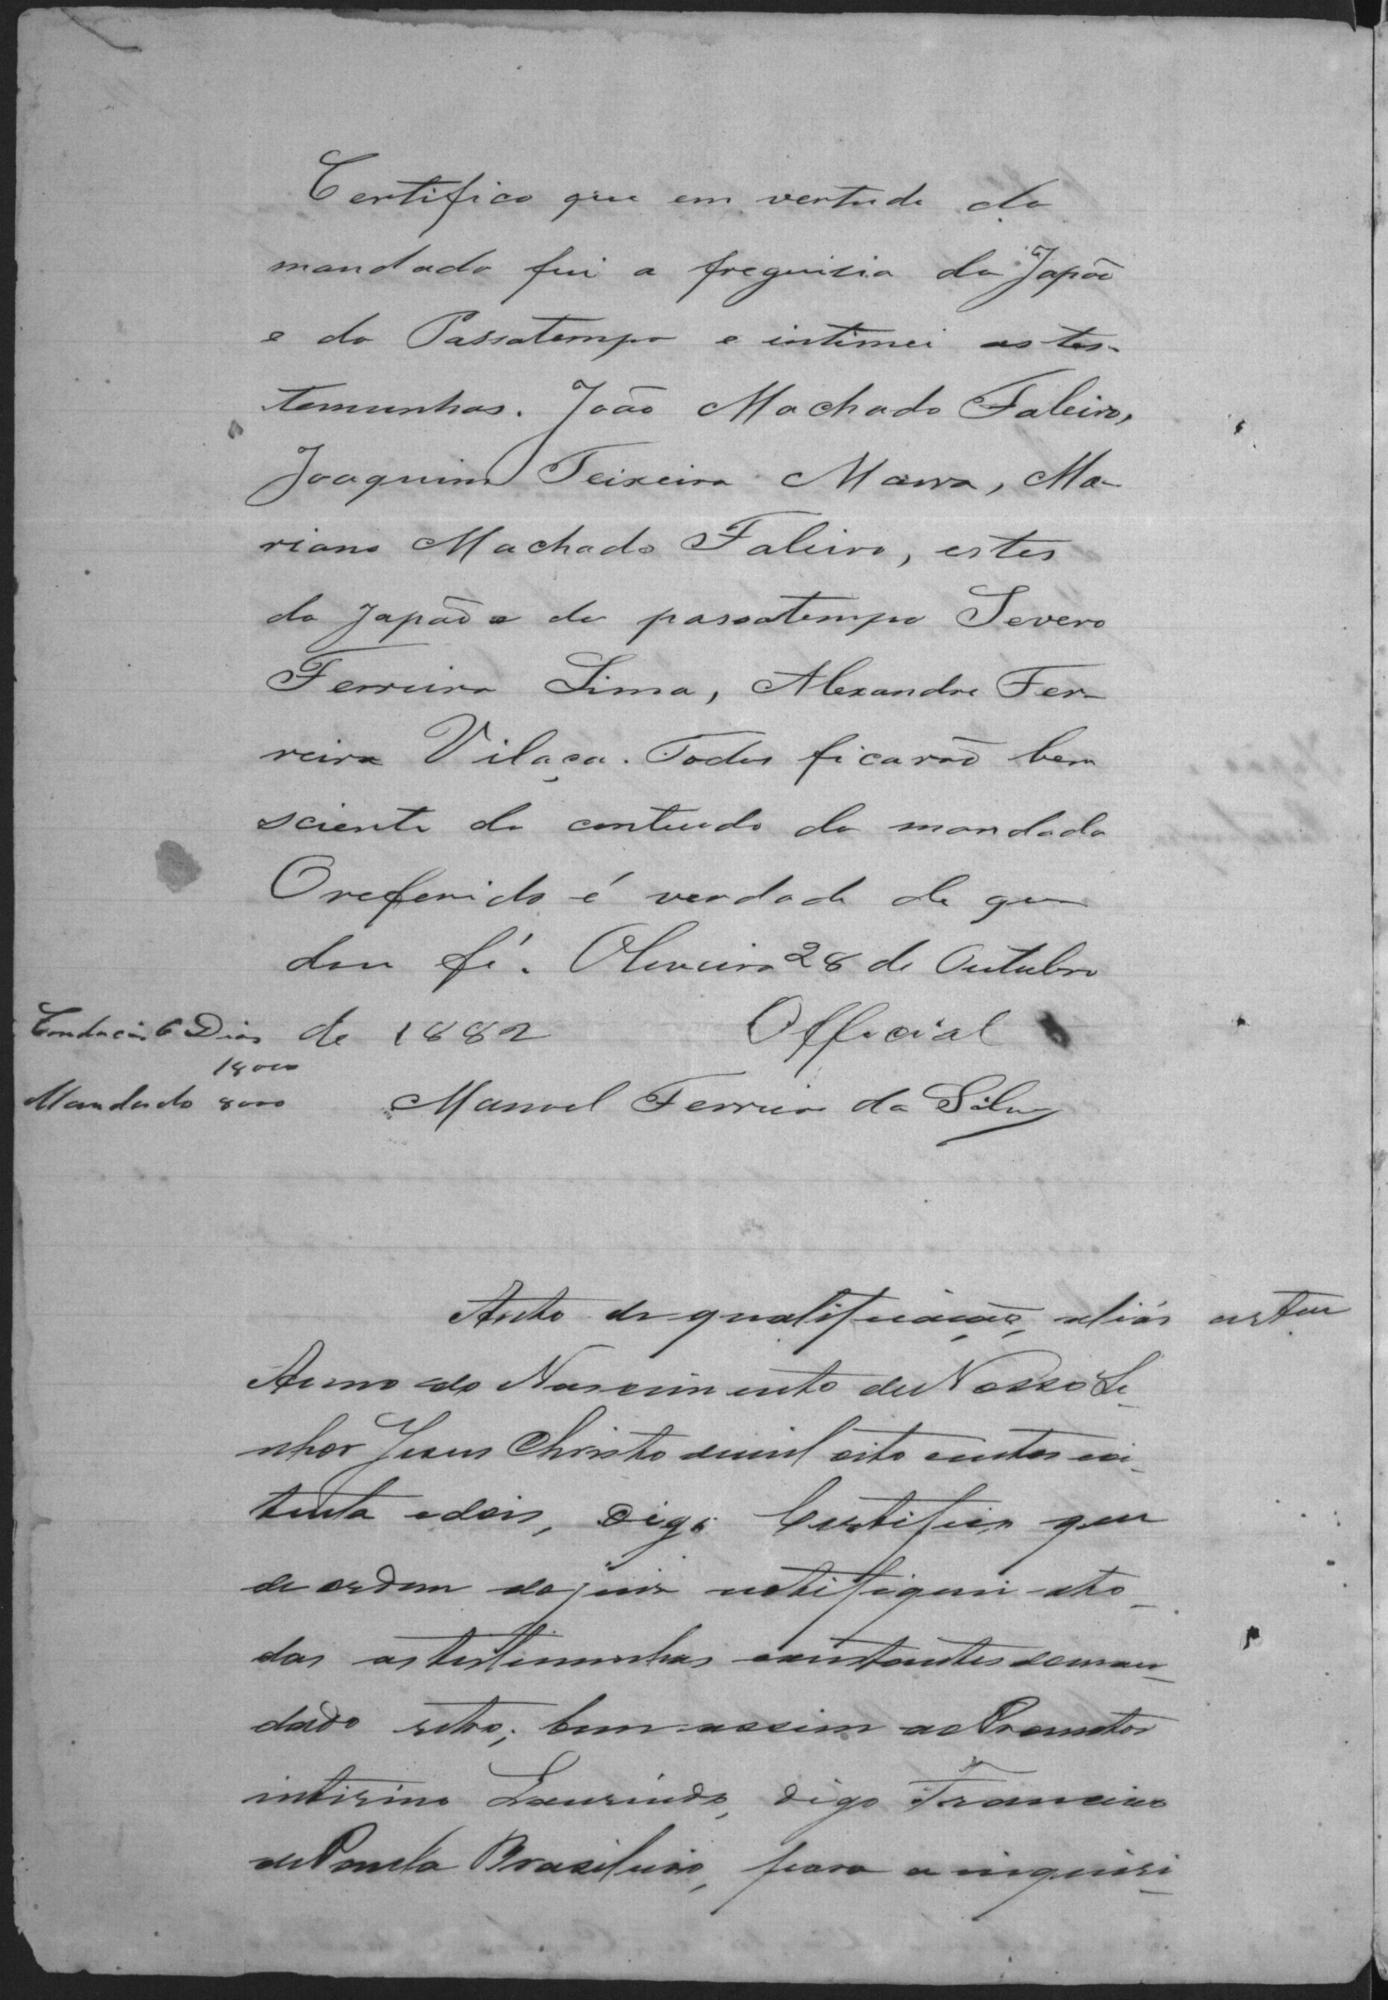 Certifico que em vertude do
mandado fui a freguizia do Japão
e do Passatempo e intimei as tes-
temunhas. João Machado Faleiro,
Joaquim Teixeira Marra, Ma-
riano Machado Faleiro, estes
do Japão e do passatempo Severo
Ferreira Lima, Alexandre Fer-
reira Vilaça. Todos ficarão bem
sciente do conteudo do mandado
O referido é verdade de que
dou fé. Oliveira 28 de Outubro
de 1882 Official
Manoel Ferreira da Silva
Conducão 6 Dias
18000
Mandado 8000
Auto de qualificação, aliás
Anno do Nascimento de Nosso Se-
nhor Jesus Christo de mil oito centos oi-
tenta e dois, Digo Certifico que
de ordem do juiz notifiquei a to-
das as testimunhas constantes do man-
dado retro, bem assim ao Promotor
intirino Laurindo, digo Francisco
de Paula Brasileiro, para a inquiri-